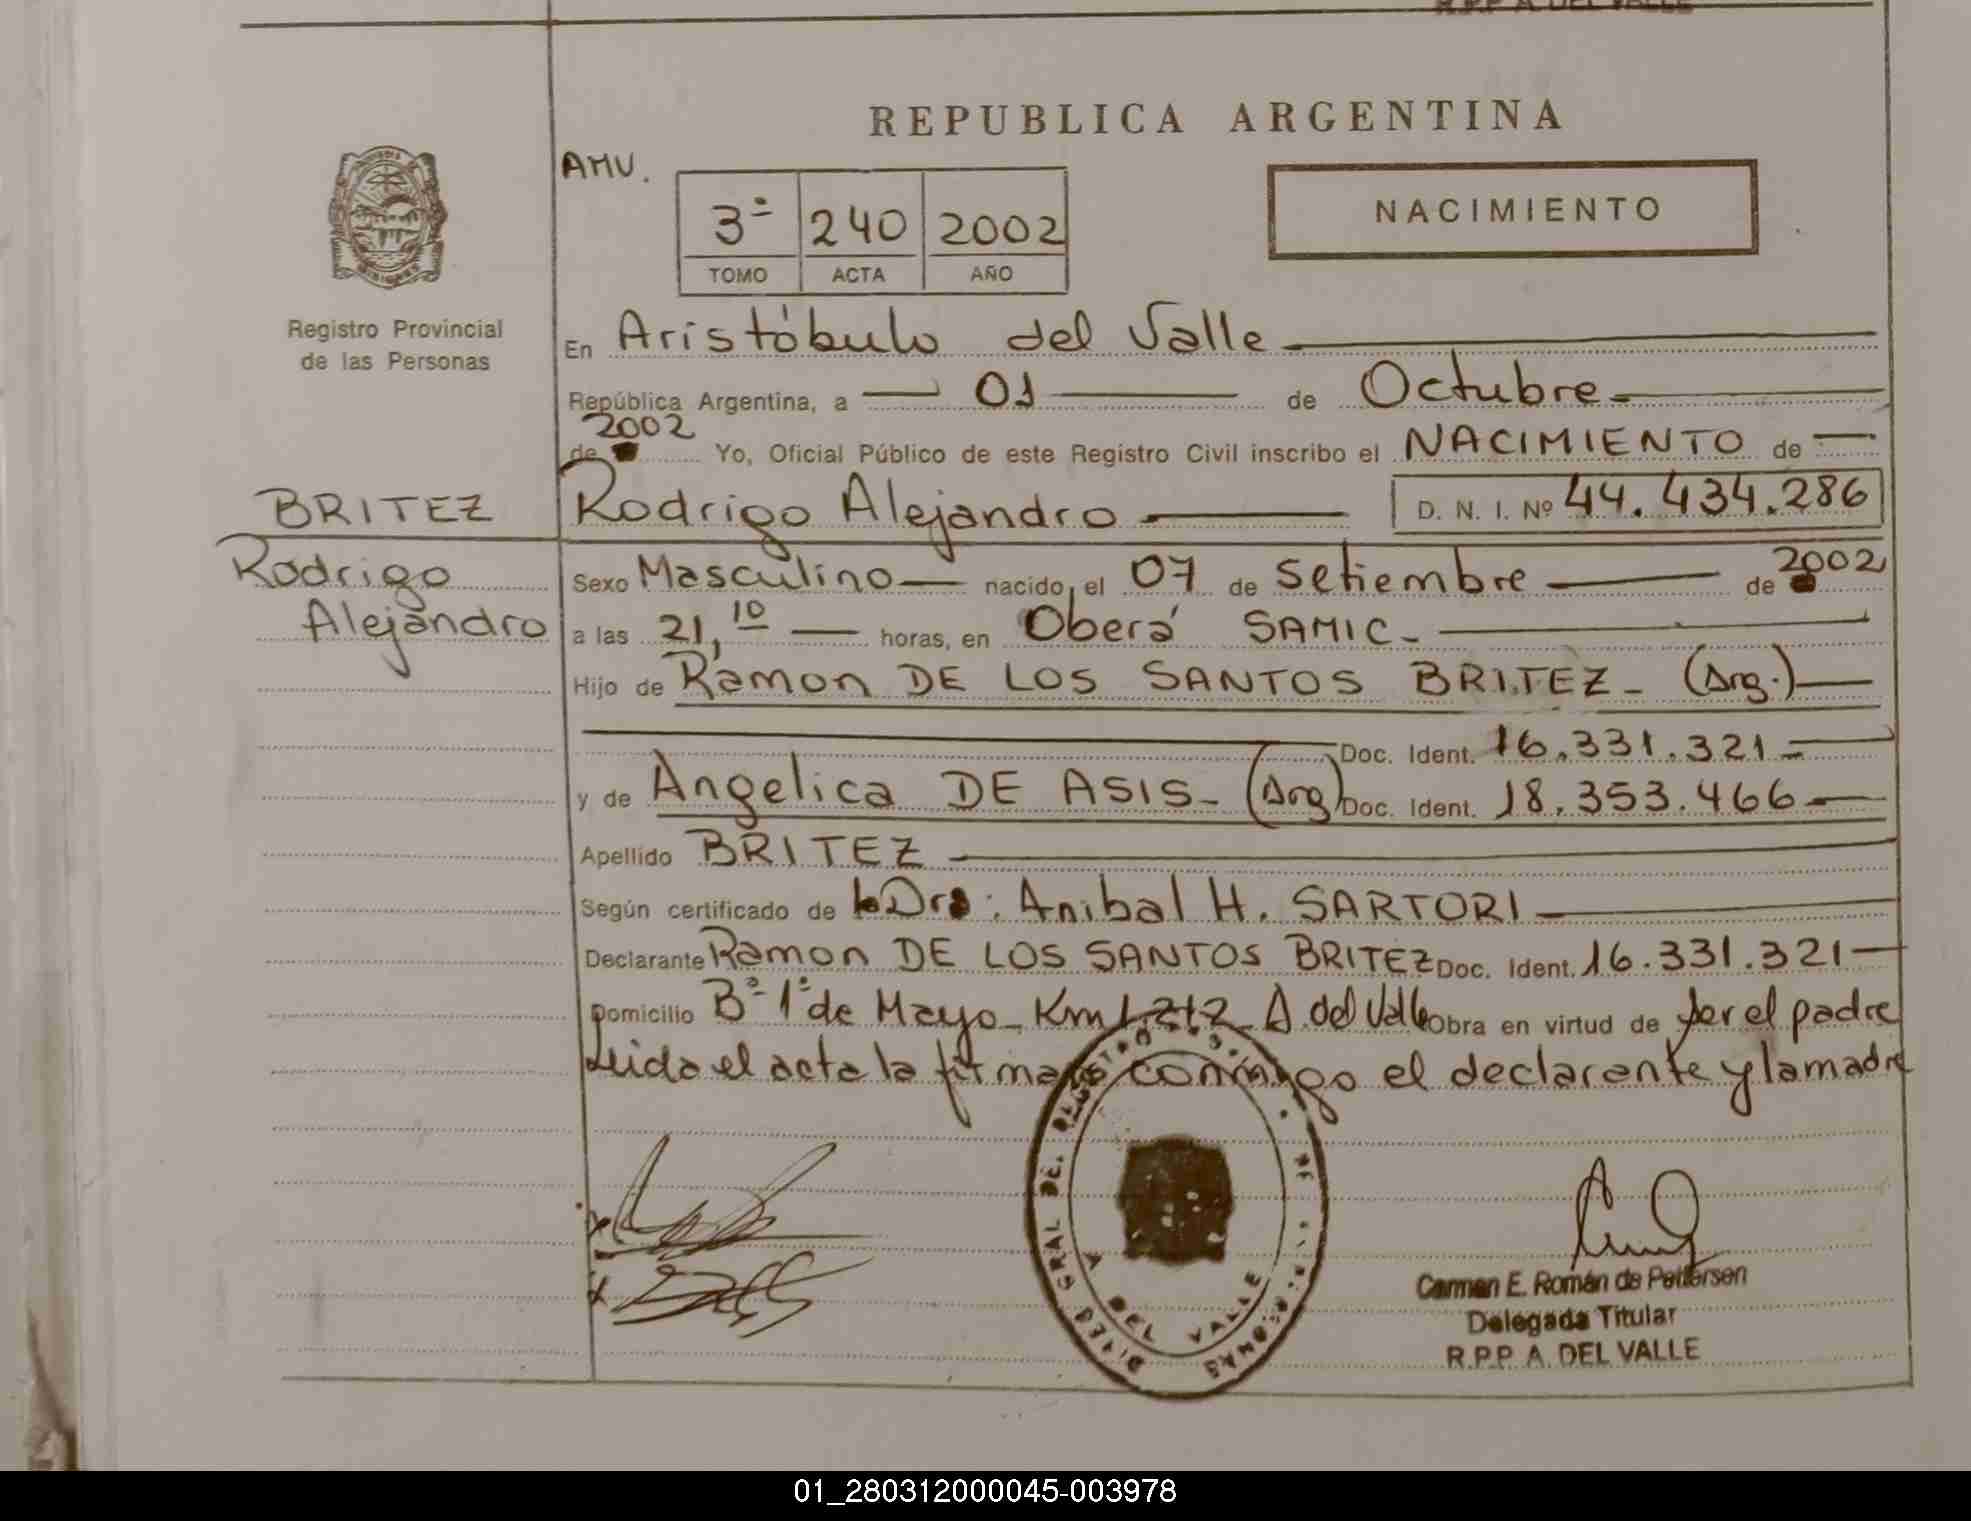 R.P.P. A. DEL VALLE
REPUBLICA ARGENTINA
AMV.
3º 240 2002
TOMO ACTA AÑO
NACIMIENTO
Registro Provincial
de las Personas
En Aristóbulo del Valle
República Argentina, a 01 de Octubre
de 2002 Yo, Oficial Público de este Registro Civil inscribo el NACIMIENTO de
BRITEZ
Rodrigo Alejandro
Rodrigo Alejandro D. N. I. Nº 44.434.286
Sexo Masculino nacido el 07 de Setiembre de 2002
a las 21,10 horas, en Oberá SAMIC.
Hijo de Ramon DE LOS SANTOS BRITEZ - (Arg.)
Doc. Ident. 16.331.321
y de Angelica DE ASIS - (Arg) Doc. Ident. 18.353.466
Apellido BRITEZ
Según certificado de Dr. Anibal H. SARTORI
Declarante Ramon DE LOS SANTOS BRITEZ Doc. Ident. 16.331.321
Domicilio Bº 1º de Mayo - Km 1212 - A. del Valle Obra en virtud de ser el padre
Leida el acta la firman conmigo el declarante y la madre
A DEL VALLE
Carmen E. Román de Pettersen
Delegada Titular
R.P.P. A. DEL VALLE
01_280312000045-003978